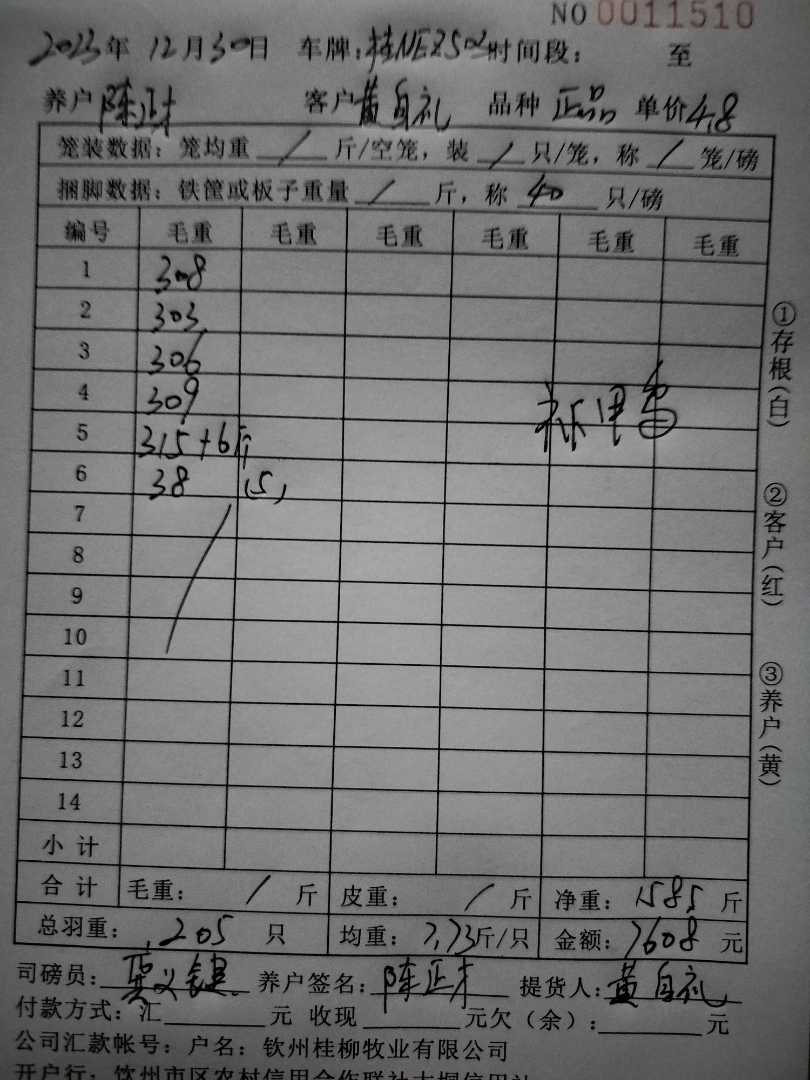 NO 0011510
2023年 12月30日 车牌：桂NEZ502 时间段： 至
养户 陈正才 客户 黄自礼 品种 正品 单价 4.8
笼装数据：笼均重 / 斤/空笼，装 / 只/笼，称 / 笼/磅
捆脚数据：铁筐或板子重量 / 斤，称 40 只/磅
编号 毛重 毛重 毛重 毛重 毛重 毛重
1 308
2 303
3 306
4 309
5 315+6斤
6 38 (5)
7
8
9
10
11
12
13
14
小计
合计 毛重： / 斤 皮重： / 斤 净重：1585 斤
总羽重：205 只 均重：7.73斤/只 金额：7608 元
司磅员： 养户签名：陈正才 提货人：黄自礼
付款方式：汇 元 收现 元欠（余）： 元
公司汇款帐号：户名：钦州桂柳牧业有限公司
开户行：钦州市区农村信用合作联社大垌信用社
①存根(白)
②客户(红)
③养户(黄)